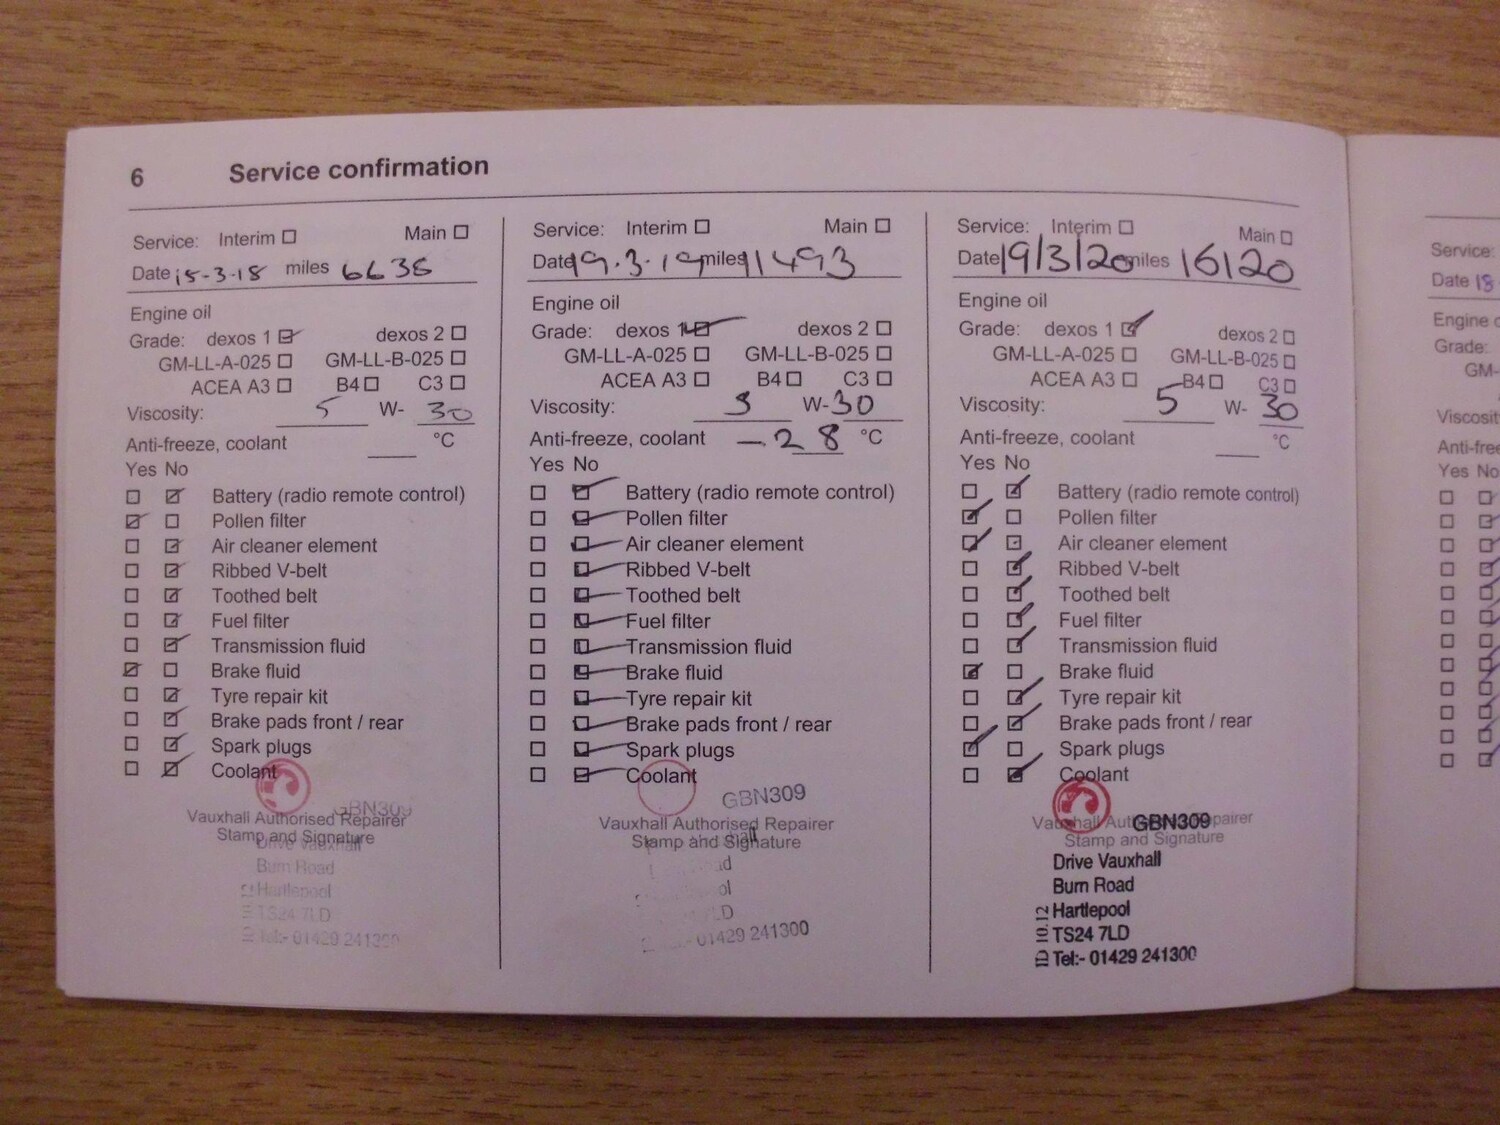 6 Service confirmation
Service: Interim ☐ Main ☐
Date 15-3-18 miles 6636
Engine oil
Grade: dexos 1 ☑ dexos 2 ☐
GM-LL-A-025 ☐ GM-LL-B-025 ☐
ACEA A3 ☐ B4 ☐ C3 ☐
Viscosity: 5 W- 30
Anti-freeze, coolant °C
Yes No
☐ ☑ Battery (radio remote control)
☑ ☐ Pollen filter
☐ ☑ Air cleaner element
☐ ☑ Ribbed V-belt
☐ ☑ Toothed belt
☐ ☑ Fuel filter
☐ ☑ Transmission fluid
☑ ☐ Brake fluid
☐ ☑ Tyre repair kit
☐ ☑ Brake pads front / rear
☐ ☑ Spark plugs
☐ ☑ Coolant
GBN309
Vauxhall Authorised Repairer
Stamp and Signature
Drive Vauxhall
Burn Road
Hartlepool
TS24 7LD
Tel:- 01429 241300
Service: Interim ☐ Main ☐
Date 19.3.19 miles 11493
Engine oil
Grade: dexos 1 ☑ dexos 2 ☐
GM-LL-A-025 ☐ GM-LL-B-025 ☐
ACEA A3 ☐ B4 ☐ C3 ☐
Viscosity: 5 W- 30
Anti-freeze, coolant -28 °C
Yes No
☐ ☑ Battery (radio remote control)
☐ ☑ Pollen filter
☐ ☑ Air cleaner element
☐ ☑ Ribbed V-belt
☐ ☑ Toothed belt
☐ ☑ Fuel filter
☐ ☑ Transmission fluid
☐ ☑ Brake fluid
☐ ☑ Tyre repair kit
☐ ☑ Brake pads front / rear
☐ ☑ Spark plugs
☐ ☑ Coolant
GBN309
Vauxhall Authorised Repairer
Stamp and Signature
01429 241300
Service: Interim ☐ Main ☐
Date 19/3/20 miles 16120
Engine oil
Grade: dexos 1 ☑ dexos 2 ☐
GM-LL-A-025 ☐ GM-LL-B-025 ☐
ACEA A3 ☐ B4 ☐ C3 ☐
Viscosity: 5 W- 30
Anti-freeze, coolant °C
Yes No
☐ ☑ Battery (radio remote control)
☑ ☐ Pollen filter
☑ ☐ Air cleaner element
☐ ☑ Ribbed V-belt
☐ ☑ Toothed belt
☐ ☑ Fuel filter
☐ ☑ Transmission fluid
☑ ☐ Brake fluid
☐ ☑ Tyre repair kit
☐ ☑ Brake pads front / rear
☑ ☐ Spark plugs
☐ ☑ Coolant
Vauxhall Authorised Repairer
GBN309
Stamp and Signature
Drive Vauxhall
Burn Road
Hartlepool
TS24 7LD
Tel:- 01429 241300
ID 10.12
Service:
Date 18
Engine
Grade:
GM-
Viscosity
Anti-free
Yes No